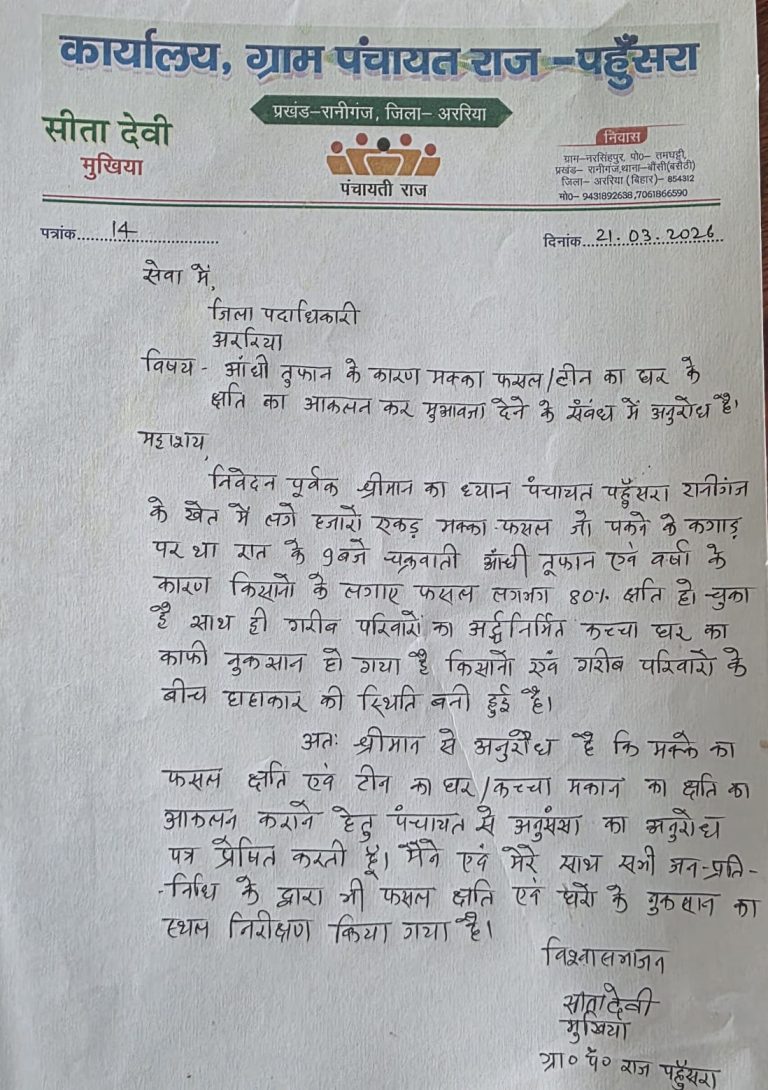 कार्यालय, ग्राम पंचायत राज –पहुँसरा
प्रखंड–रानीगंज, जिला– अररिया
सीता देवी
मुखिया
पंचायती राज
निवास
ग्राम–नरसिंहपुर, पो०– तमघट्टी,
प्रखंड– रानीगंज,थाना–बौंसी(बसैठी)
जिला– अररिया (बिहार)– 854312
मो०– 9431892638 ,7061866590
पत्रांक 14
दिनांक 21.03.2026
सेवा में,
जिला पदाधिकारी
अररिया
विषय - आंधी तुफान के कारण मक्का फसल/टीन का घर के
क्षति का आकलन कर मुआवजा देने के संबंध में अनुरोध है।
महाशय,
निवेदन पूर्वक श्रीमान का ध्यान पंचायत पहुँसरा रानीगंज
के खेत में लगे हजारो एकड़ मक्का फसल जो पकने के कगाड़
पर था रात के 9 बजे चक्रवाती आँधी तूफान एवं वर्षा के
कारण किसानो के लगाए फसल लगभग 80% क्षति हो चुका
है साथ ही गरीब परिवारों का अर्द्धनिर्मित कच्चा घर का
काफी नुकसान हो गया है किसानो एवं गरीब परिवारो के
बीच हाहाकार की स्थिति बनी हुई है।
अतः श्रीमान से अनुरोध है कि मक्के का
फसल क्षति एवं टीन का घर/कच्चा मकान का क्षति का
आकलन कराने हेतु पंचायत से अनुसंसा का अनुरोध
पत्र प्रेषित करती हूँ। मैंने एवं मेरे साथ सभी जन-प्रति-
-निधि के द्वारा भी फसल क्षति एवं घरो के नुकसान का
स्थल निरीक्षण किया गया है।
विश्वासभाजन
सीता देवी
मुखिया
ग्रा० पं० राज पहुँसरा